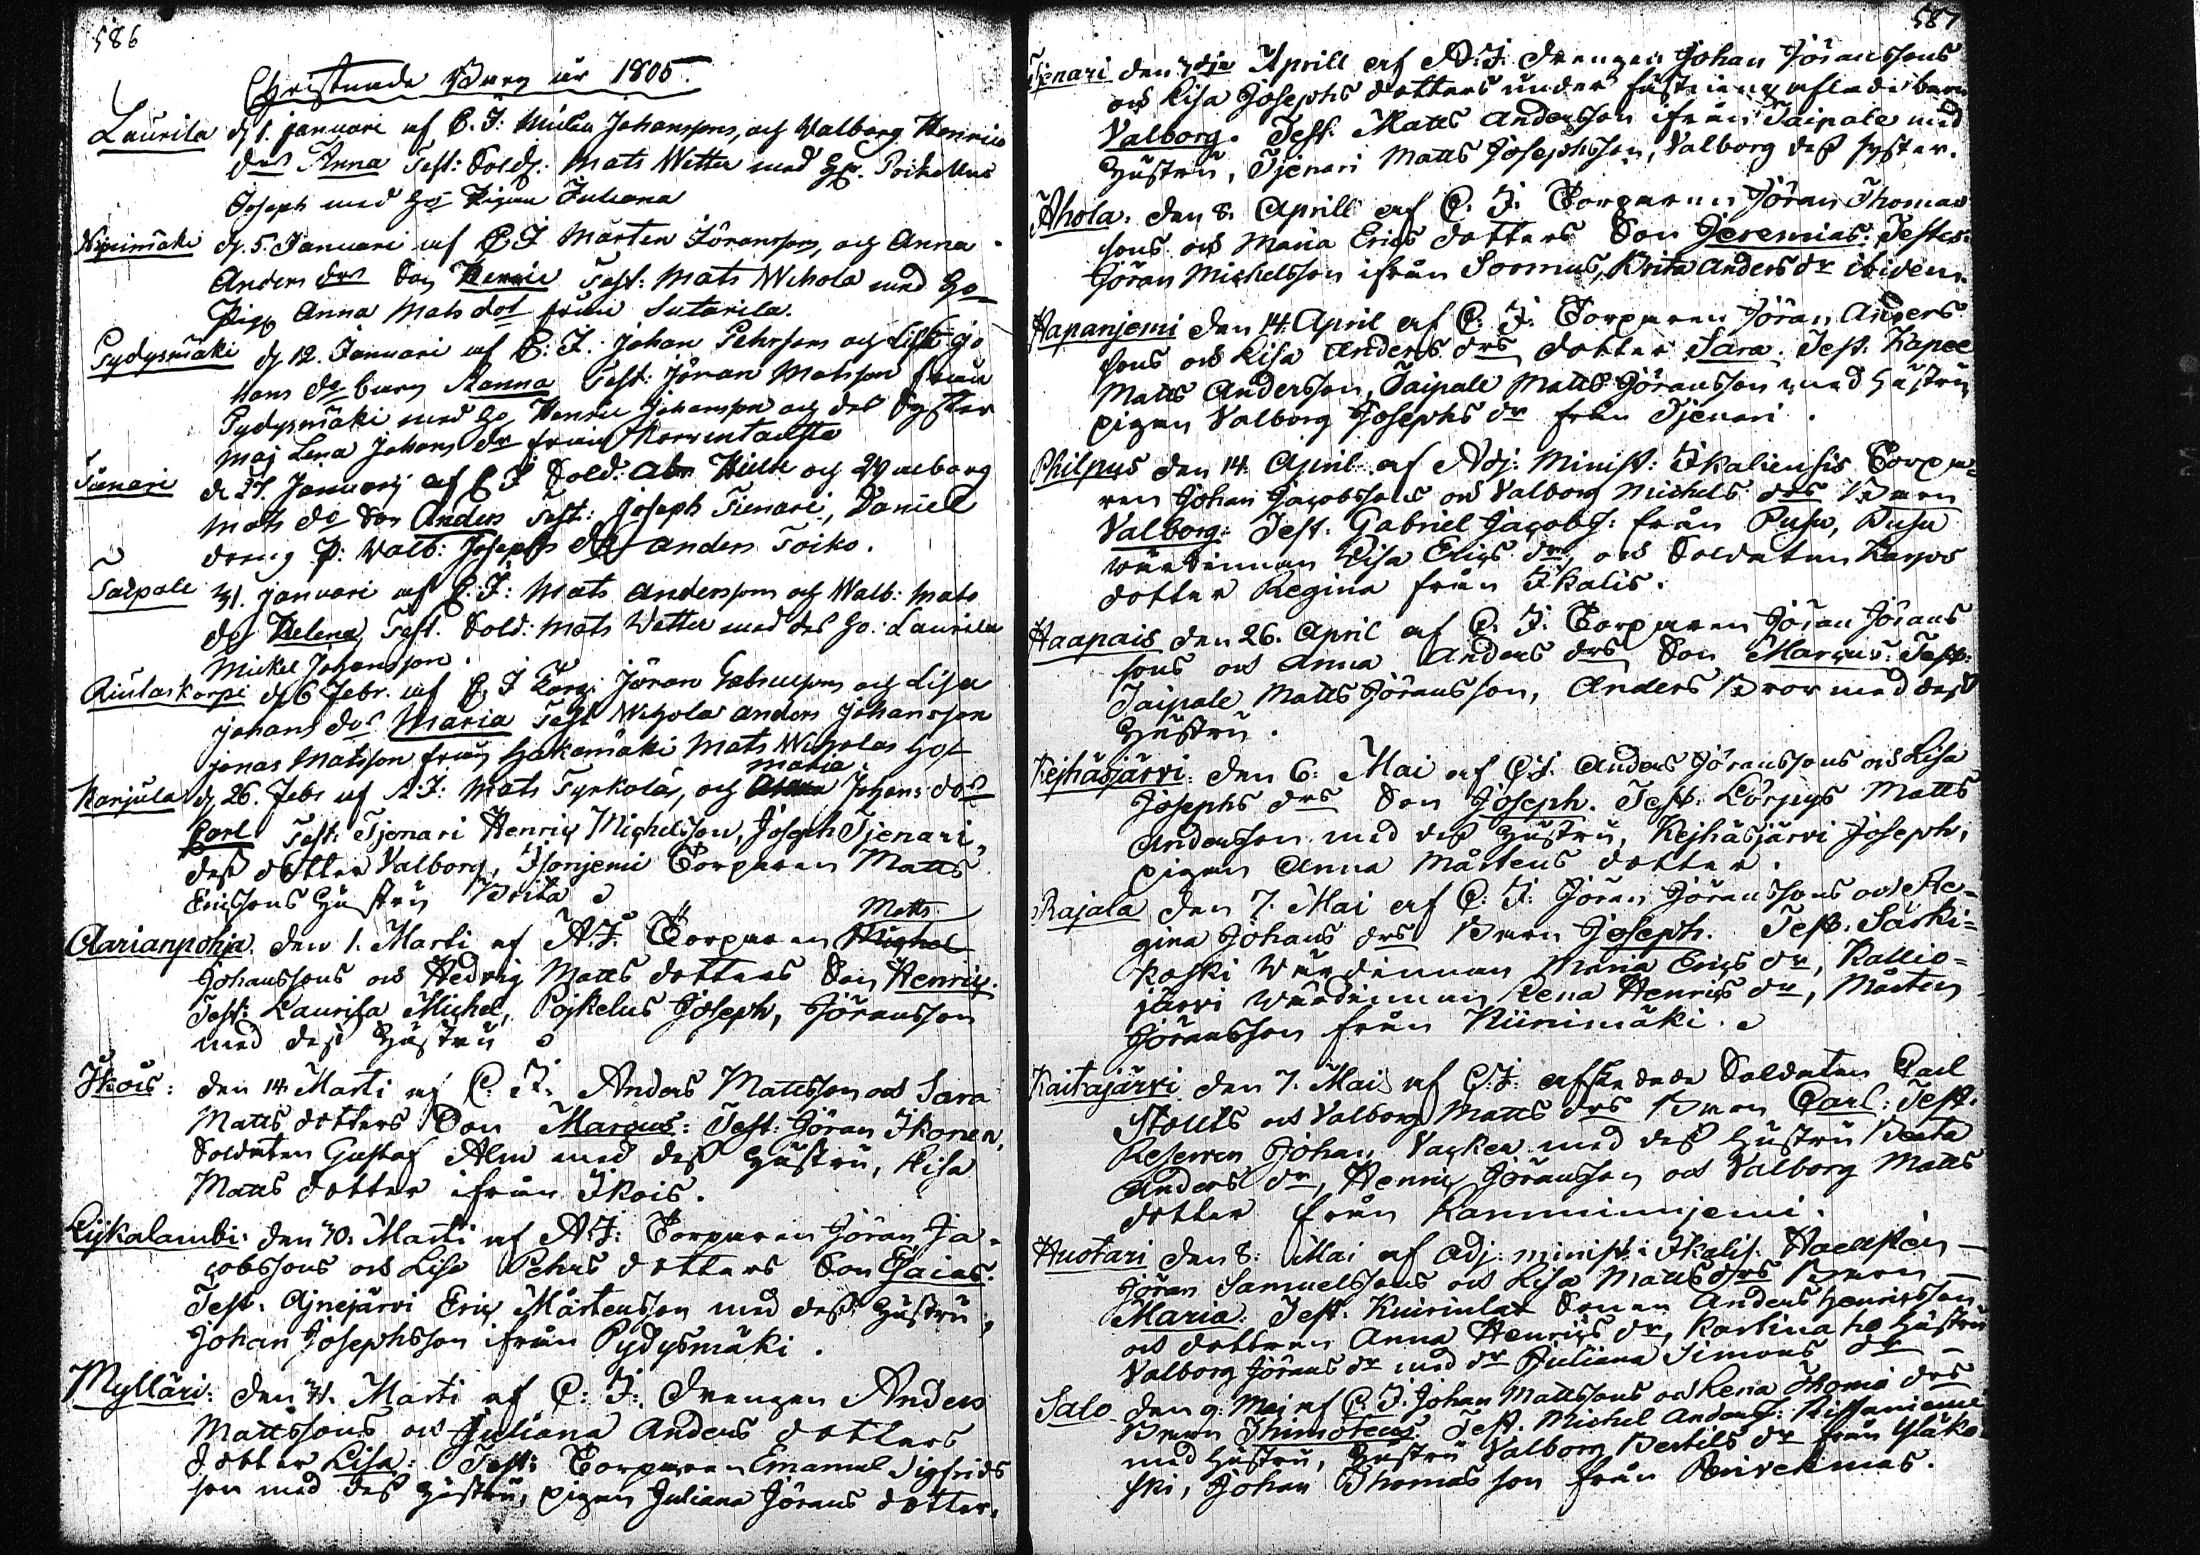 586
Christnade Barn år 1805.
Laurila d. 1. januari af C. J: Michu Johanssons, och Walborg Henrics
drs Anna Test: Sold: Mats Wetter med H. Poikelus
Joseph med H Pigan Juliana
Niinimäki d. 5. Januari af C. J Mårten Jöranssons, och Anna
Anders drs Son Henric Test: Mats Wihola med Ho
Pig Anna Mats dot från Sutarila.
Pydysmäki d 12. Januari af C: J. Johan Pehrsons och Lisa Jo
hans dr barn Anna Test: Jöran Matsson från
Pydysmäki med Ho Henric Johansson och des Syster
Maj Lena Johans dr från
Tienari d 27. Januarij af C J Sold: Hielte och Walborg
Mats dr Son Anders Test: Joseph Tienari, Daniel
dreng P: Walb: Josephs dr Anders Toiko.
Taipale 31. januari af C. J: Mats Anderssons och Walb: Mats
drs Helena, Test. Sold: Mats Wetter med des Ho: Laurila
Mickel Johansson.
Riutaskorpi d 6 Febr. af C J Torp: Jöran Gabrielsons och Lisa
Johans drs Maria Test Wihola Anders Johansson
Jonas Matsson från Hakamäki Mats Wiholas Hot
maria
Karjula d. 26. Febr af A J: Mats Tyrkoläs, och Johans dot
Carl Test: Tjenari Henric Michelsson, Joseph Tjenari,
dess dotter Valborg, Isonjemi Torparen Matts
Ericssons Hustru Brita
Matts
Aarianpohja. den 1. Marti af A. J. Torparen Michel
Johanssons och Hedvig Matts dotters Son Henric.
Test: Laurila Michel, Pojkelus Joseph, Jöransson
med dess Hustru
Ikois: den 14 Marti af C. J. Anders Mattsson och Sara
Matts dotters Son Marcus: Test: Jöran Ikonen,
Soldaten Gustaf Alm med dess Hustru, Lisa
Matts dotter ifrån Ikois.
Lijkalambi: den 30. Marti af A. J: Torparen Jöran Ja-
cobssons och Lisa Pehrs dotters Son Esaias.
Test. Ajnejärvi Eric Mårtensson med dess Hustru,
Johan Josephsson ifrån Pydysmäki.
Mylläri: den 31. Marti af C: J: Drengen Anders
Mattssons och Juliana Anders dotters
dotter Lisa: Test: Torparen Emanuel Sigfrids
son med des Hustru, pigan Juliana Jörans dotter.
587
Tjenari den 7dje Aprill af A: J: drengen Johan Jöranssons
och Lisa Josephs dotters under fästning aflade barn
Valborg. Test. Matts Andersson ifrån Taipale med
Hustru, Tjenari Matts Josephsson, Valborg dess syster.
Ahola. den 8. Aprill af C. J. Torparen Jöran Thomas
sons och Maria Erics dotters Son Jeremias: Testes:
Jöran Michelsson ifrån Sormus, Brita Anders dr ibidem.
Hapanjemi den 14. April af C. J. Torparen Jöran Anders
sons och Lisa Anders drs dotter Sara. Test. Kapee
Matts Andersson, Taipale Matts Jöransson med Hustru
pigan Valborg Josephs dr från Tjenari.
Philpus den 14. April af Adj: Minist: Ikaliensis Torpa-
ren Johan Jacobssons och Valborg Michels drs Barn
Valborg: Test. Gabriel Jacobs: från Pusu, Pusu
wärdinnan Lisa Erics dr, och Soldaten Karpos
dotter Regina från Ikalis.
Haapais den 26. April af C. J. Torparen Jöran Jörans
sons och Anna Anders drs Son Marcus: Test:
Taipale Matts Jöransson, Anders Bror med dess
Hustru.
Kejhäsjärvi: den 6: Mai af C. J. Anders Jöranssons och Lisa
Josephs drs Son Joseph. Test. Lörpys Matts
Andersson med dess Hustru, Kejhäsjärvi Joseph,
pigan Anna Mårtens dotter.
Rajala den 7. Mai af C. J: Jöran Jöranssons och Re-
gina Johans drs Barn Joseph. Test. Särki-
koski wärdinnan Maria Erics dr, Kallio-
järvi wärdinnan Lena Henrics dr, Mårten
Jöransson från Niinimäki.
Kaitajärvi den 7. Mai af C. J. afskedade Soldaten Carl
Stolts och Valborg Matts drs Barn Carl: Test.
Reserven Johan Vacker med dess Hustru Beata
Anders dr, Henric Jöransson och Valborg Matts
dotter från Kanminnjemi.
Huotari den 8: Mai af Adj: minist: Ikalis.
Jöran Samuelssons och Lisa Matts drs Barn
Maria. Test. Knirinlax Sonen Anders Henricsson
och dottren Anna Henrics dr, Hustru
Valborg Jörans dr med dr Juliana Simons dr
Salo den 9. Maj af C. J. Johan Mattssons och Lena Thoma drs
Barn Thimoteus. Test. Michel Anders: Rissaniemi
med Hustru, Hustru Valborg Bertils dr från Yläko
ski, Johan Thomasson från